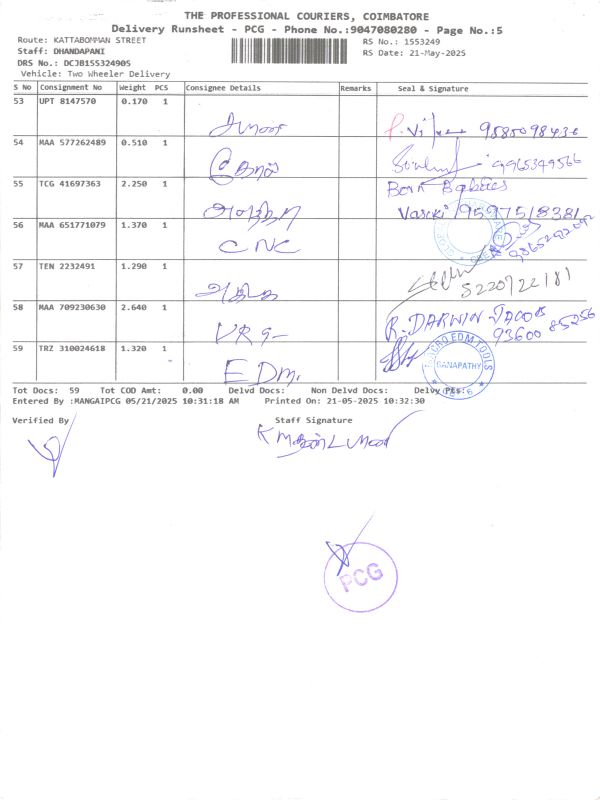 THE PROFESSIONAL COURIERS, COIMBATORE
Delivery Runsheet - PCG - Phone No.:9047080280 - Page No.:5
Route: KATTABOMMAN STREET
RS No.: 1553249
Staff: DHANDAPANI
RS Date: 21-May-2025
DRS No.: DCJB155324905
Vehicle: Two Wheeler Delivery
S No Consignment No Weight PCS Consignee Details Remarks Seal & Signature
53 UPT 8147570 0.170 1
54 MAA 577262489 0.510 1
9965349566
55 TCG 41697363 2.250 1
Vasuki 9597518381
56 MAA 651771079 1.370 1 CNC
9865292092
57 TEN 2232491 1.290 1
5220722181
58 MAA 709230630 2.640 1 R. DARWIN JACOB
93600 85256
59 TRZ 310024618 1.320 1 EDM.
MICRO EDM TOOLS
GANAPATHY
Tot Docs: 59 Tot COD Amt: 0.00 Delvd Docs: Non Delvd Docs: Delvy PEs:
Entered By :MANGAIPCG 05/21/2025 10:31:18 AM Printed On: 21-05-2025 10:32:30
Verified By Staff Signature
PCG